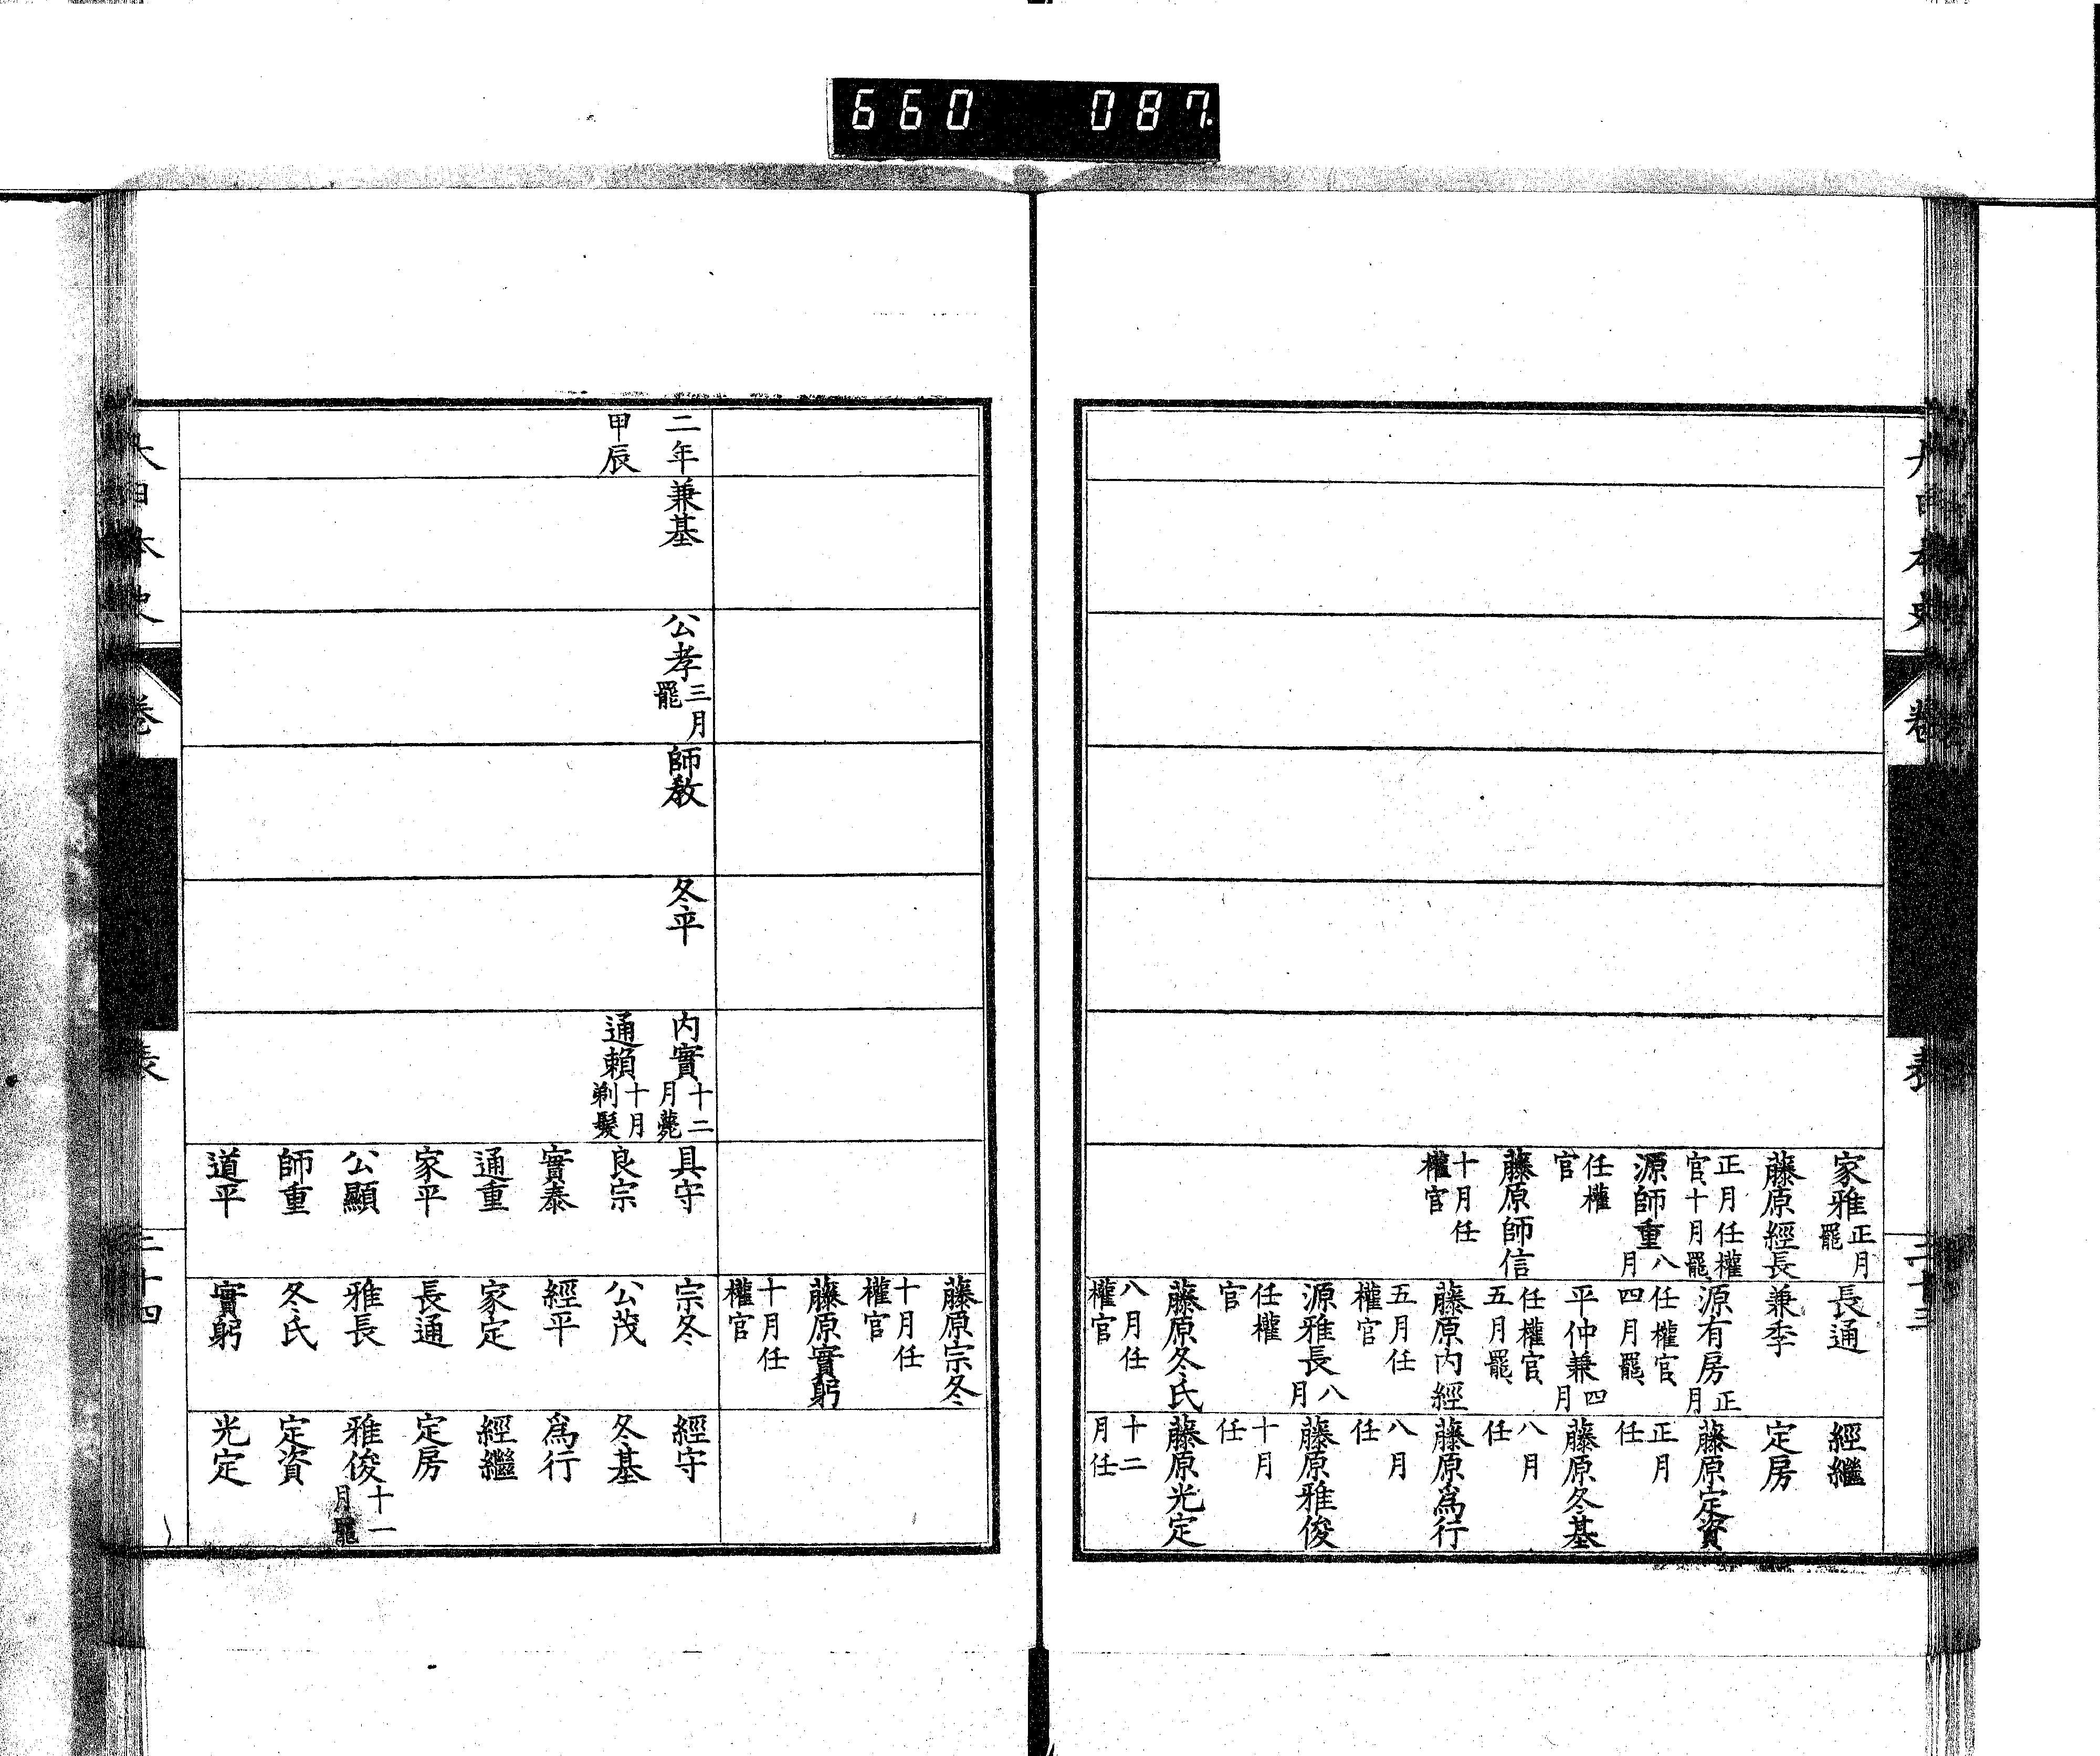 660 087
大日本史
卷
表
二十三
家雅正月罷
藤原經長
正月任權官十月罷
源師重八月
任權官
藤原師信
十月任權官
長通
兼季
源有房正月
任權官四月罷
平仲兼四月
任權官五月罷
藤原内經
五月任權官
源雅長八月
任權官
藤原冬氏
八月任權官
經繼
定房
藤原定資
正月任
藤原冬基
八月任
藤原爲行
八月任
藤原雅俊
十月任
藤原光定
十二月任
藤原宗冬
十月任權官
藤原實躬
十月任權官
二年
甲辰
兼基
公孝三月罷
師教
冬平
内實十二月薨
通賴十月剃髮
具守
良宗
實泰
通重
家平
公顯
師重
道平
宗冬
公茂
經平
家定
長通
雅長
冬氏
實躬
經守
冬基
爲行
經繼
定房
雅俊十一月罷
定資
光定
大日本史
卷
表
二十四